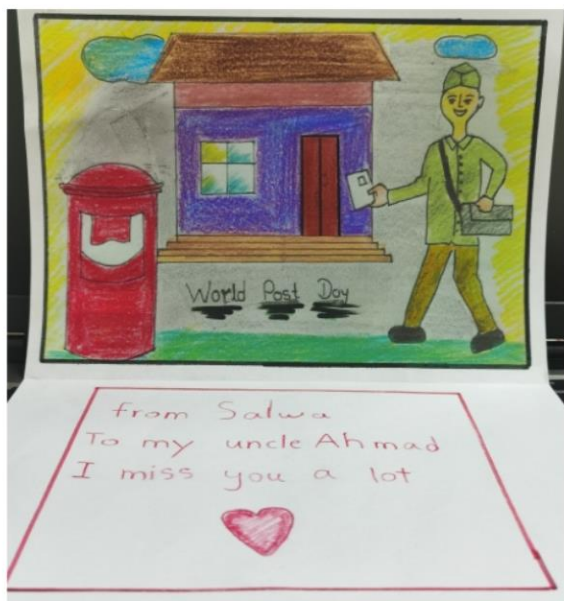 World Post Day
from Salwa
To my uncle Ahmad
I miss you a lot